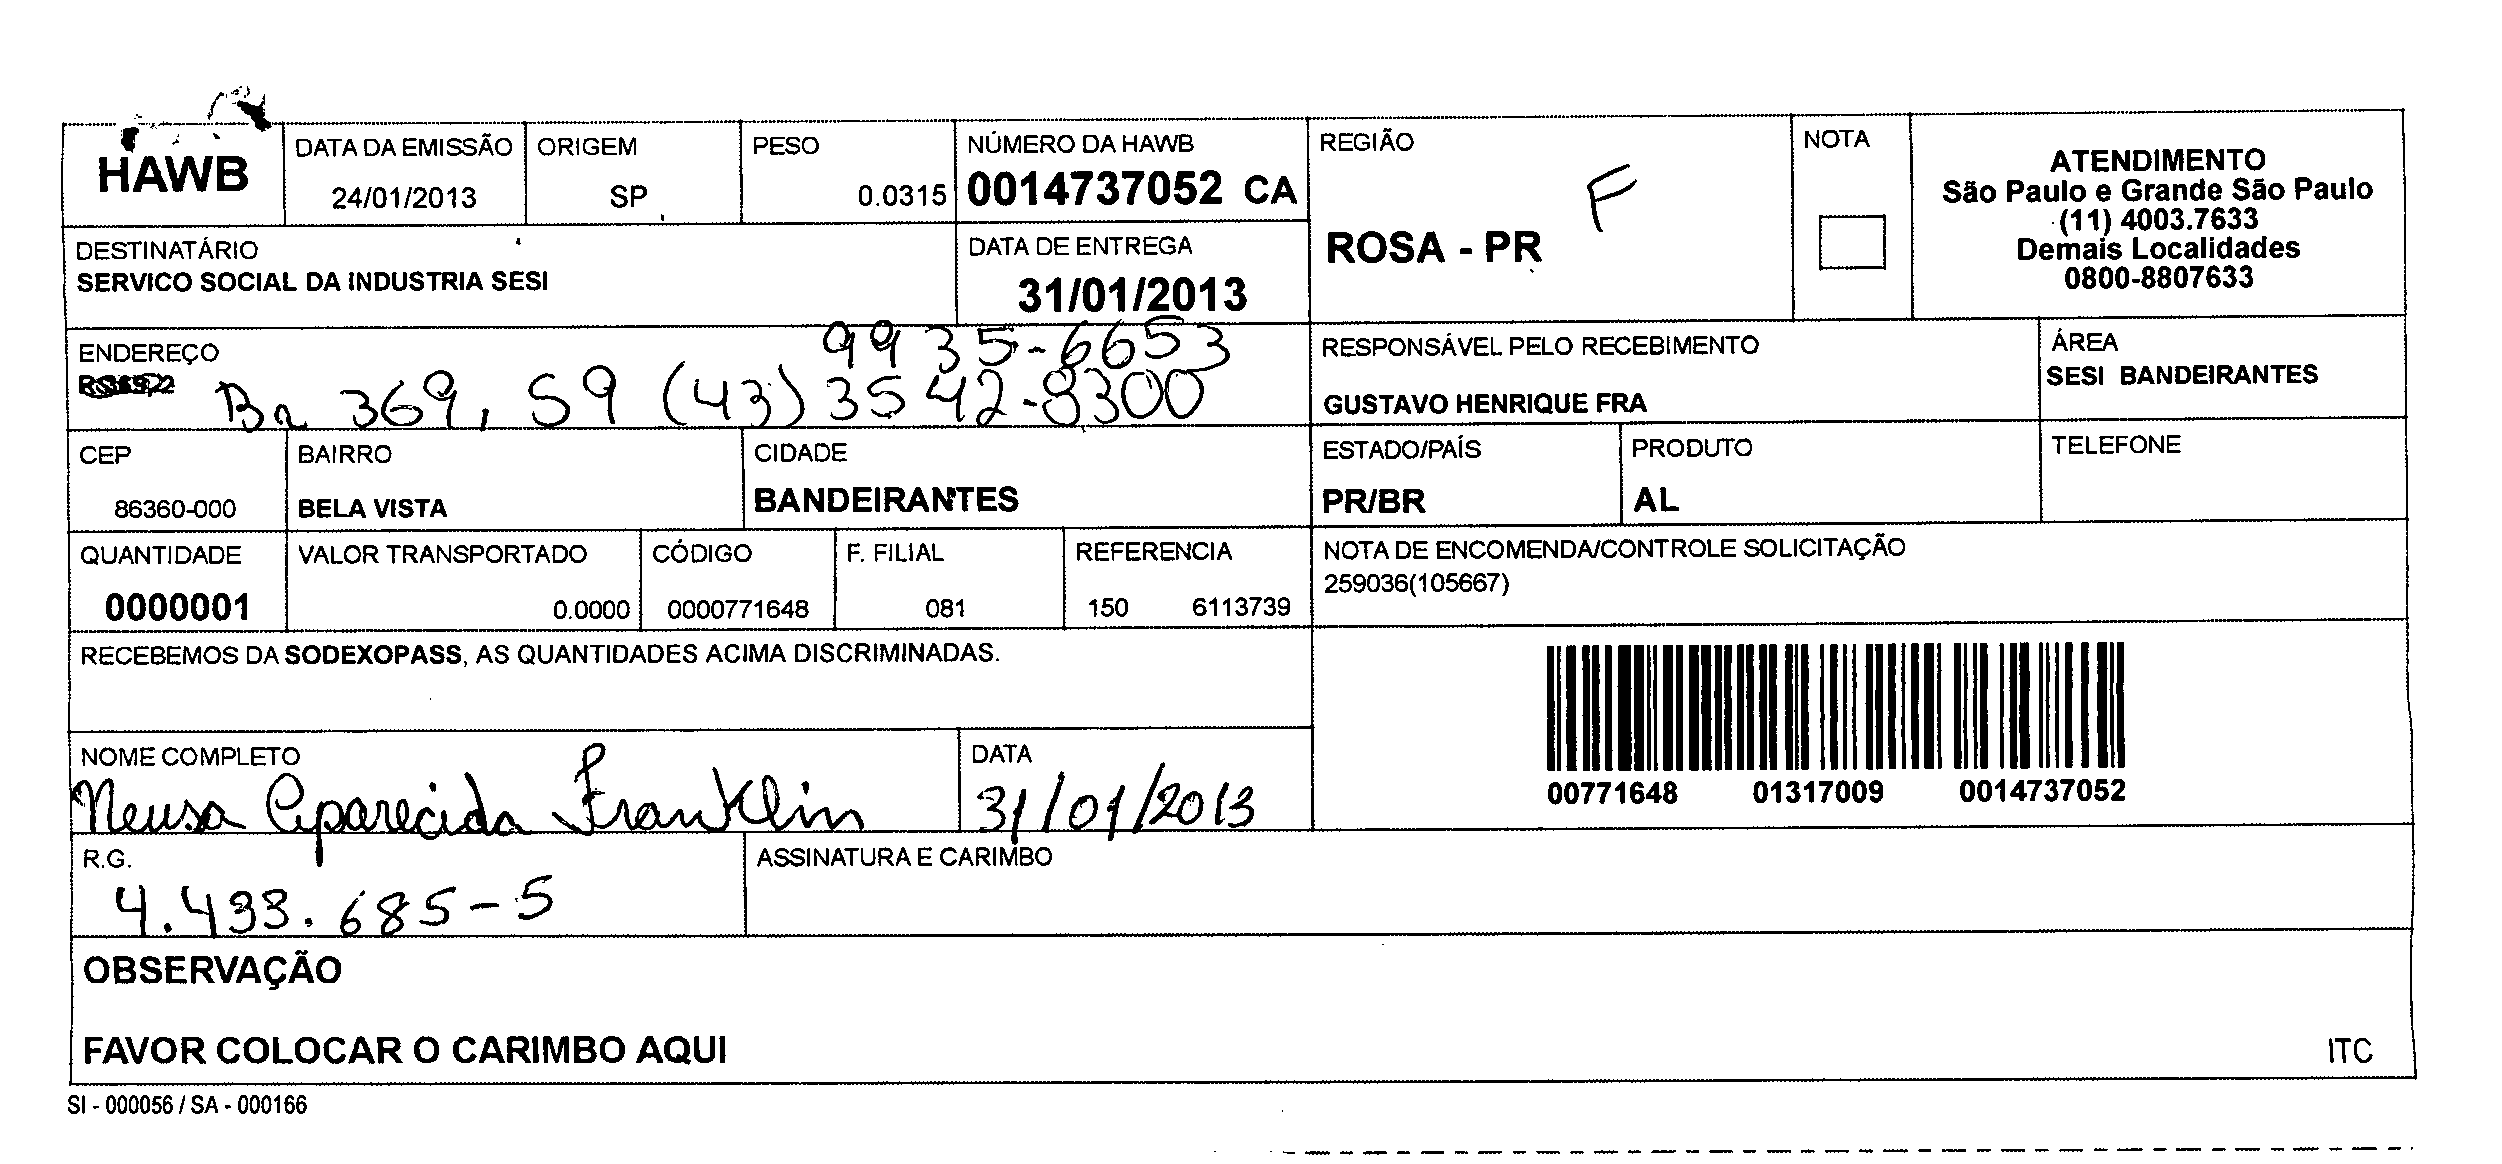 HAWB
DATA DA EMISSÃO
24/01/2013
ORIGEM
SP
PESO
0.0315
NÚMERO DA HAWB
0014737052 CA
REGIÃO
ROSA - PR
F
NOTA
ATENDIMENTO
São Paulo e Grande São Paulo
(11) 4003.7633
Demais Localidades
0800-8807633
DESTINATÁRIO
SERVICO SOCIAL DA INDUSTRIA SESI
DATA DE ENTREGA
31/01/2013
ENDEREÇO
9935-6653
Br 369, 59 (43) 3542-8300
RESPONSÁVEL PELO RECEBIMENTO
GUSTAVO HENRIQUE FRA
ÁREA
SESI BANDEIRANTES
CEP
86360-000
BAIRRO
BELA VISTA
CIDADE
BANDEIRANTES
ESTADO/PAÍS
PR/BR
PRODUTO
AL
TELEFONE
QUANTIDADE
0000001
VALOR TRANSPORTADO
0.0000
CÓDIGO
0000771648
F. FILIAL
081
REFERENCIA
150 6113739
NOTA DE ENCOMENDA/CONTROLE SOLICITAÇÃO
259036(105667)
RECEBEMOS DA SODEXOPASS, AS QUANTIDADES ACIMA DISCRIMINADAS.
00771648 01317009 0014737052
NOME COMPLETO
Neusa Aparecida Franklin
DATA
31/01/2013
R.G.
4.433.685-5
ASSINATURA E CARIMBO
OBSERVAÇÃO
FAVOR COLOCAR O CARIMBO AQUI
ITC
SI - 000056 / SA - 000166